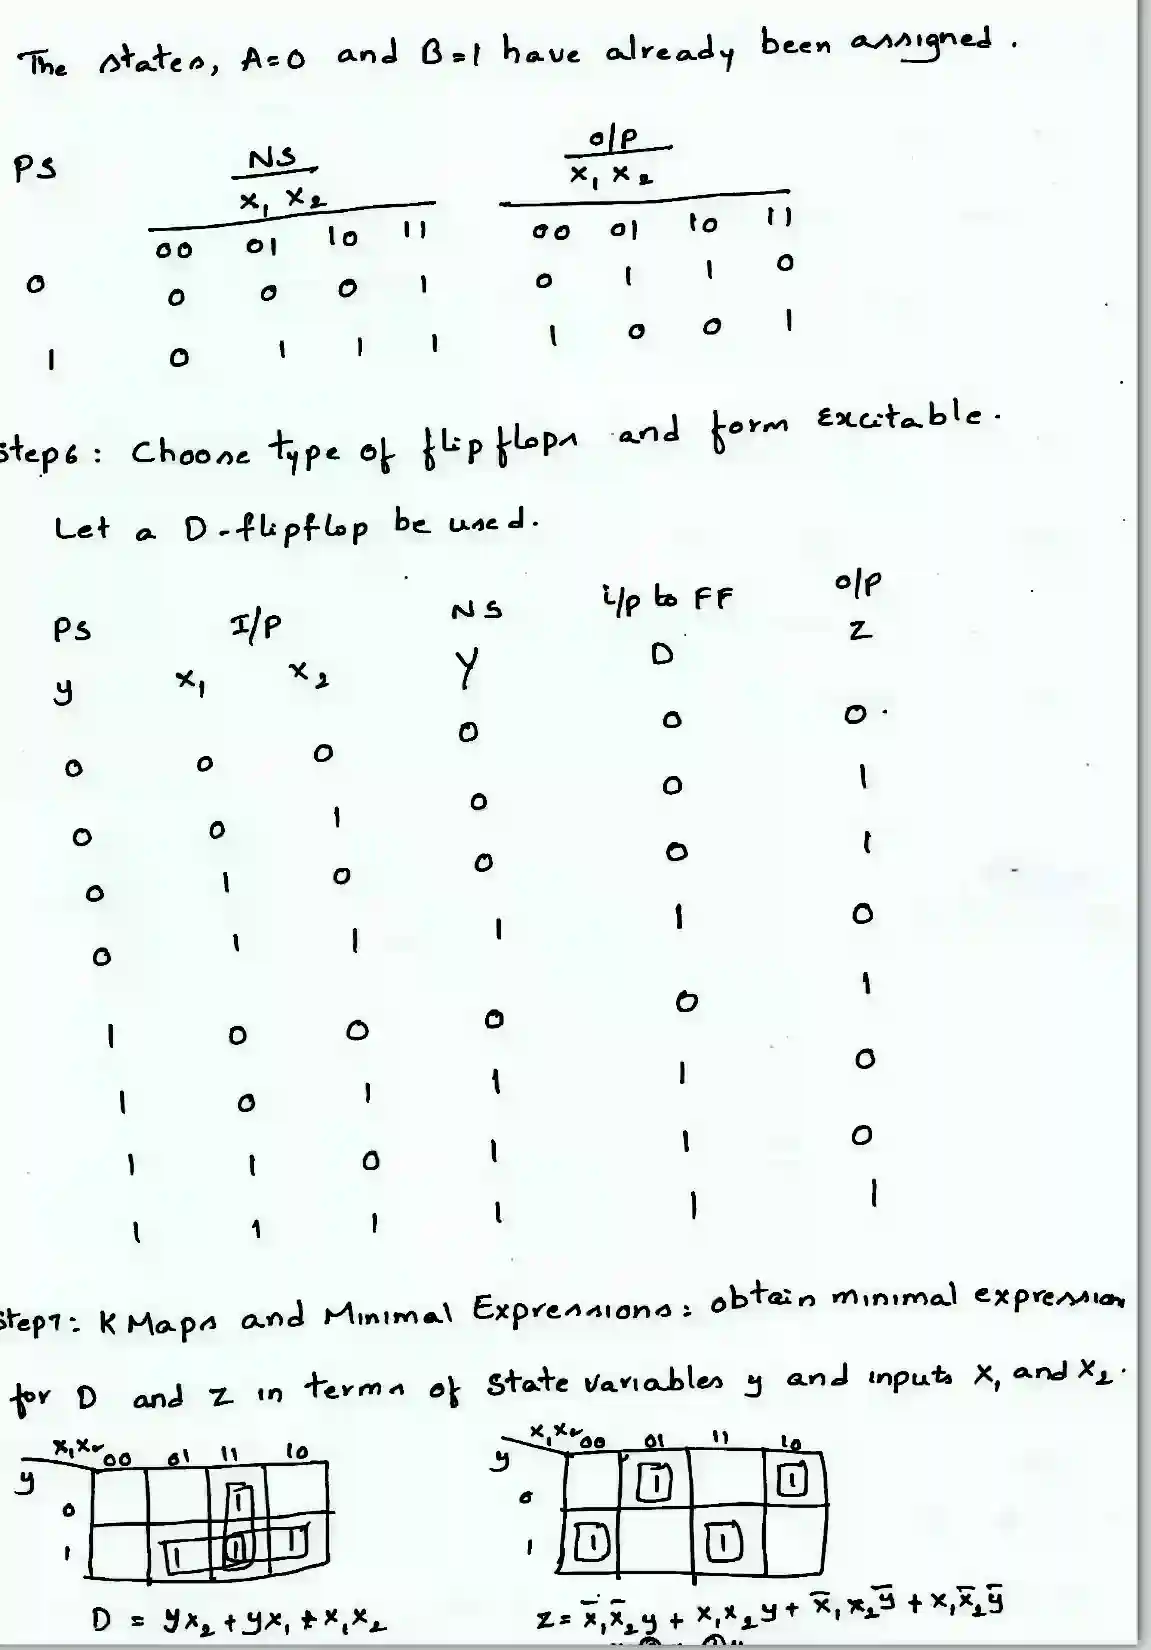 The states, A=0 and B=1 have already been assigned.
PS NS O/P
x₁ x₂ x₁ x₂
00 01 10 11 00 01 10 11
0 0 0 0 1 0 1 1 0
1 0 1 1 1 1 0 0 1
Step6: Choose type of flip flops and form Excitable.
Let a D-flipflop be used.
PS I/P NS i/p to FF o/p
y x₁ x₂ Y D Z
0 0 0 0 0 0
0 0 1 0 0 1
0 1 0 0 0 1
0 1 1 1 1 0
1 0 0 0 0 1
1 0 1 1 1 0
1 1 0 1 1 0
1 1 1 1 1 1
Step7: K Maps and Minimal Expressions: obtain minimal expression
for D and Z in terms of state variables y and inputs x₁ and x₂.
x₁x₂ 00 01 11 10 x₁x₂ 00 01 11 10
y y
0 1 0 1 1
1 1 1 1 1 1 1
D = yx₂ + yx₁ + x₁x₂ Z = x̄₁x̄₂y + x₁x₂y + x̄₁x₂ȳ + x₁x̄₂ȳ